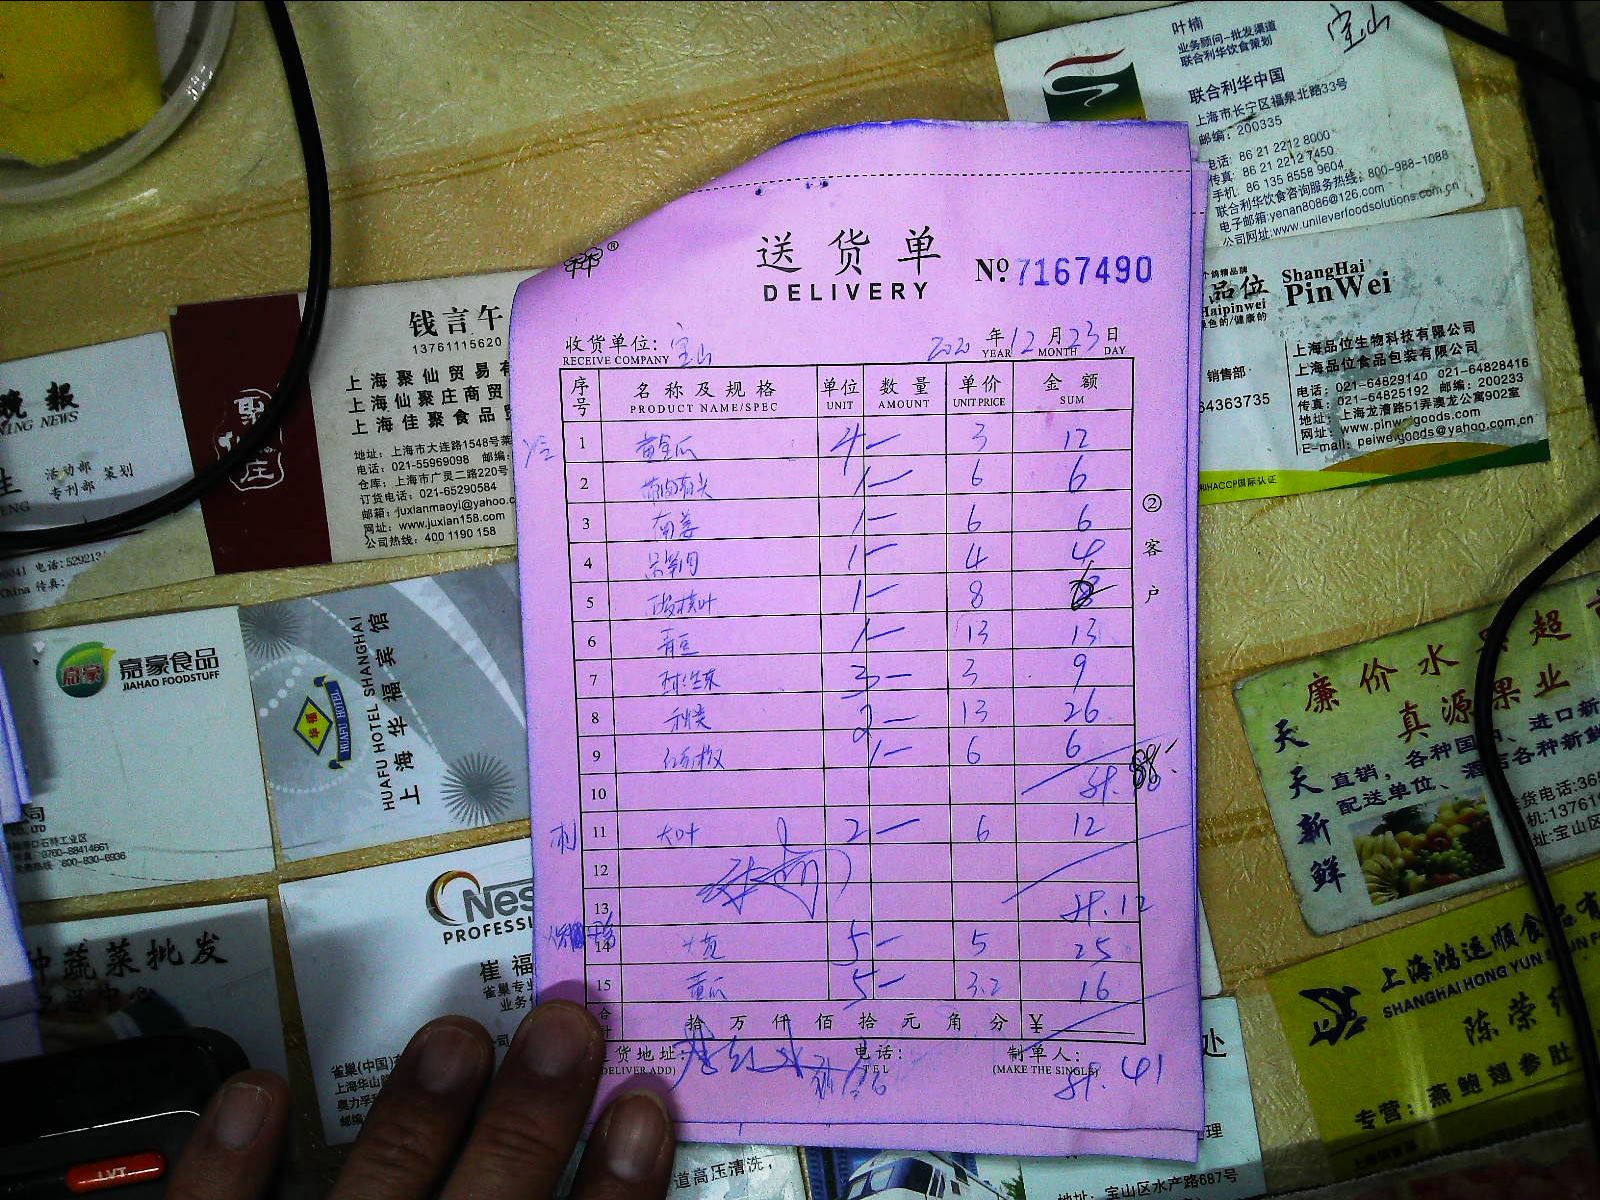 叶楠
业务顾问-批发渠道
联合利华饮食策划
宝山
联合利华中国
上海市长宁区福泉北路33号
邮编: 200335
电话: 86 21 2212 8000
传真: 86 21 2212 7450
手机: 86 135 8558 9604
联合利华饮食咨询服务热线: 800-988-1088
电子邮箱:yenan8086@126.com
公司网址:www.unileverfoodsolutions.com.cn
品位
Haipinwei
ShangHai
PinWei
上海品位生物科技有限公司
上海品位食品包装有限公司
销售部
64363735
电话: 021-64829140 021-64828416
传真: 021-64825192 邮编: 200233
地址: 上海龙漕路51弄澳龙公寓902室
网址: www.pinweigoods.com
E-mail: peiweigoods@yahoo.com.cn
和HACCP国际认证
送货单
DELIVERY
№ 7167490
收货单位: 宝山
RECEIVE COMPANY
2020 年 12 月 23 日
YEAR MONTH DAY
序号 名称及规格 单位 数量 单价 金额
PRODUCT NAME/SPEC UNIT AMOUNT UNIT PRICE SUM
1 黄金瓜 4 — 3 12
2 1 — 6 6
3 南姜 1 — 6 6
4 1 — 4 4
5 1 — 8
6 青豆 1 — 13 13
7 3 — 3 9
8 秋葵 2 — 13 26
9 1 — 6 6
10 88.
11 大叶 2 — 6 12
12
13 12
14 5 — 5 25
15 黄瓜 5 — 3.2 16
合计 拾万仟佰拾元角分 ¥
送货地址:
(DELIVER ADD)
电话:
TEL
制单人:
(MAKE THE SINGLE)
41
② 客户
钱言午
13761115620
上海聚仙贸易有
上海仙聚庄商贸
上海佳聚食品贸
地址: 上海市大连路1548号莱
电话: 021-55969098 邮编:
仓库: 上海市广灵二路220号
订货电话: 021-65290584
邮箱: juxianmaoyi@yahoo.c
网址: www.juxian158.com
公司热线: 400 1190 158
聚仙庄
號報
NING NEWS
活动部 策划
专刊部
电话:5292134
China 传真:
嘉豪
嘉豪食品
JIAHAO FOODSTUFF
800-830-6936
华福
HUAFU HOTEL
HUAFU HOTEL SHANGHAI
上海华福宾馆
Nes
PROFESSI
崔福
雀巢专业
业务
雀巢(中国)有
上海华山路
奥力孚
邮编:
种蔬菜批发
LVT
廉价水果超市
真源果业
天天新鲜
直销,各种国内、进口新
配送单位、酒店各种新鲜
上海鸿运顺食品有
SHANGHAI HONG YUN SHUN FO
陈荣
专营: 燕鲍翅参肚
道高压清洗,
地址: 宝山区水产路687号